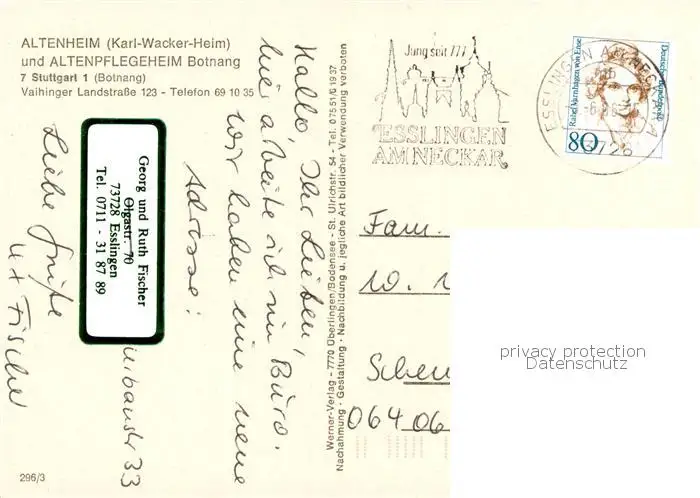 ALTENHEIM (Karl-Wacker-Heim)
und ALTENPFLEGEHEIM Botnang
7 Stuttgart 1 (Botnang)
Vaihinger Landstraße 123 - Telefon 69 10 35
Hallo, Ihr Lieben,
hier arbeite ich im Büro.
Wir haben eine neue
Adresse:
Georg und Ruth Fischer
Olgastr. 70
73728 Esslingen
Tel. 0711 - 31 87 89
33
Liebe Grüße
Fischer
296/3
Werner-Verlag - 7770 Überlingen/Bodensee - St. Ulrichstr. 54 - Tel. 07551/61937
Nachahmung - Gestaltung - Nachbildung u. jegliche Art bildlicher Verwendung verboten
Jung seit 777
ESSLINGEN
AM NECKAR
ESSLINGEN AM NECKAR
73728
Rahel Varnhagen von Ense
Deutsche Bundespost
80
Fam.
10.
Schen
06406
privacy protection
Datenschutz